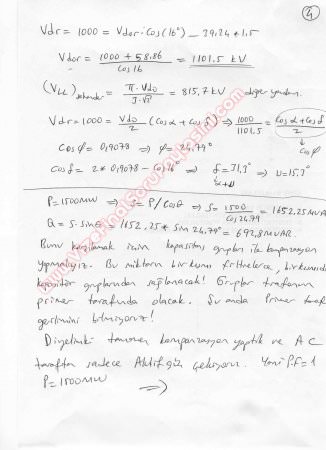 4
Vdr = 1000 = Vdor·Cos(16°) - 39,24 * 1,5
Vdor = (1000 + 58,86) / Cos16 = 1101.5 kV
(VLL)sekonder = π·Vdo / 3·√2 = 815,7 kV diğer yandan.
Vdr = 1000 = Vdo/2 (Cosα + Cosδ) ⇒ 1000/1101.5 = (Cosα + Cosδ)/2
Cosφ
Cosφ = 0,9078 ⇒ φ = 24,79°
Cosδ = 2 * 0,9078 - Cos16° ⇒ δ = 31,3° ⇒ u = 15,3°
α+u
P = 1500MW ⇒ S = P/Cosθ ⇒ S = 1500/Cos24.79 = 1652.25 MVAR
Q = S·sinθ = 1652,25 * sin 24,79° = 692,8 MVAR.
Bunu karşılamak için kapasitör grupları ile kompanzasyon
yapmalıyız. Bu miktarın bir kısmı filtrelerce, bir kısmıda
kapasitör gruplarından sağlanacak! Gruplar trafonun
primer tarafında olacak. Şu anda Primer taraf
gerilimini bilmiyoruz!
Diyelimki tamamen kompanzasyon yaptık ve AC
taraftan sadece Aktif güç çekiyoruz. Yani P.f = 1
P = 1500MW ⇒